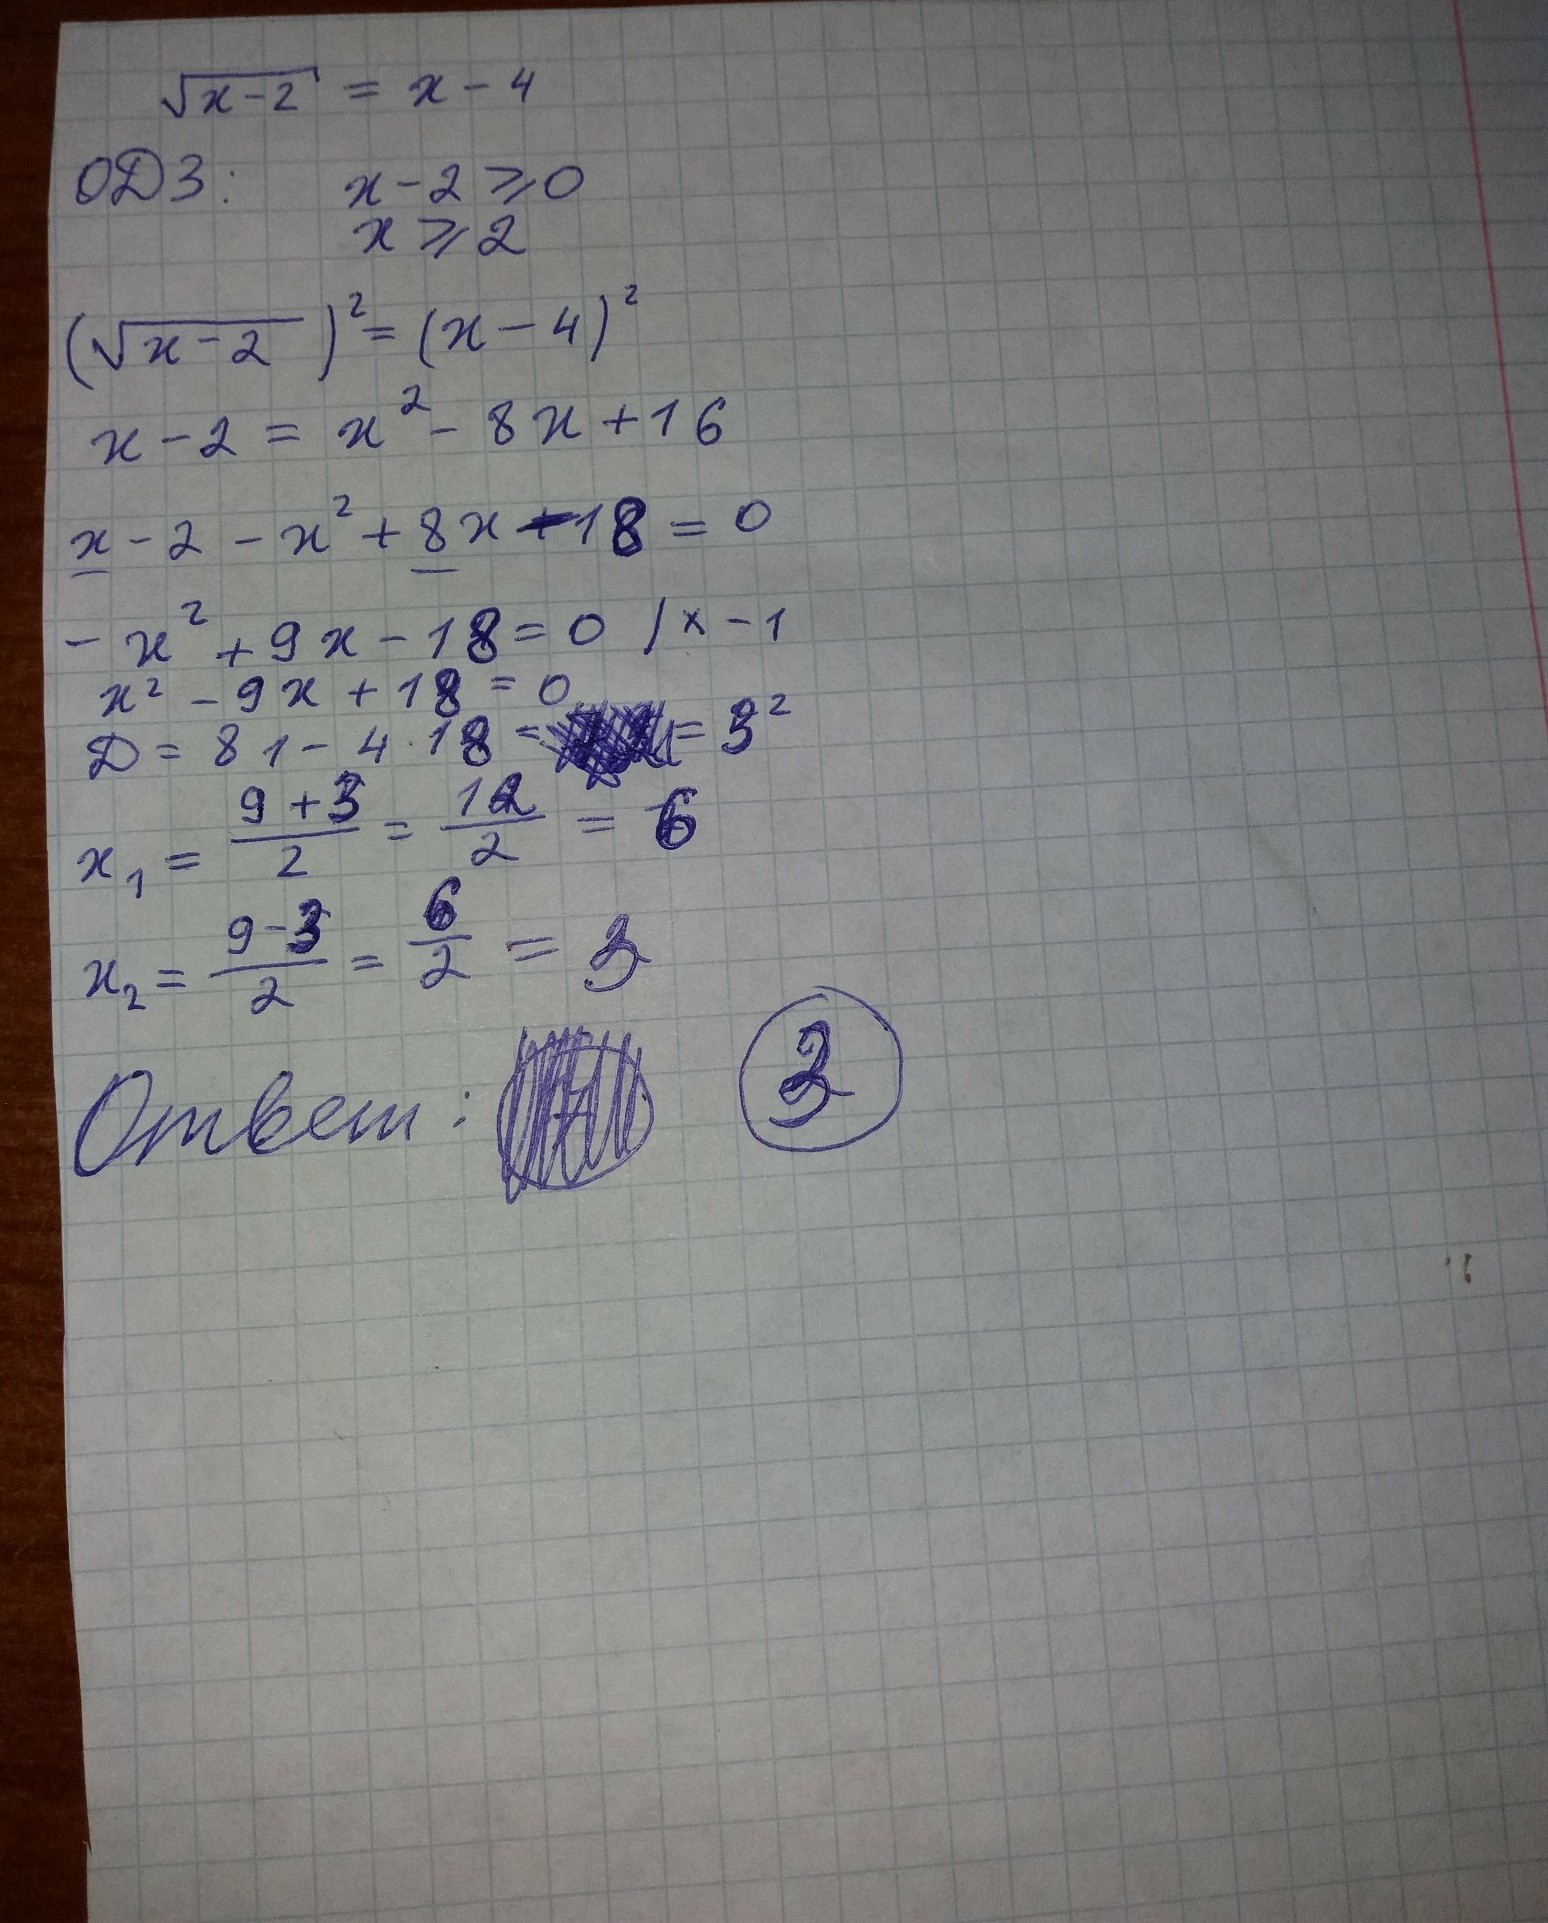 √x-2 = x - 4
ОДЗ: x - 2 ⩾ 0
x ⩾ 2
(√x-2)² = (x - 4)²
x - 2 = x² - 8x + 16
x - 2 - x² + 8x - 18 = 0
- x² + 9x - 18 = 0 / × - 1
x² - 9x + 18 = 0
D = 81 - 4 · 18 = = 3²
x₁ = (9 + 3)/2 = 12/2 = 6
x₂ = (9 - 3)/2 = 6/2 = 3
Ответ: 3